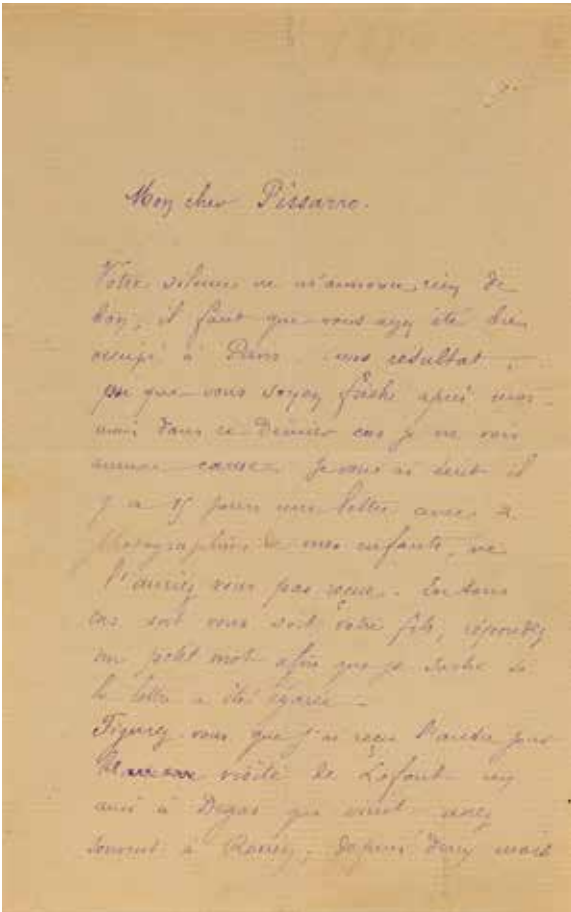 Mon cher Pissarro.
Votre silence ne m'annonce rien de
bon, il faut que vous ayez été bien
occupé à Paris resultat,
ou que vous soyez faché après moi
mais dans ce dernier cas je ne vois
aucune cause. Je vous ai écrit il
y a 15 jours une lettre avec 2
photographies de mes enfants, ne
l'auriez vous pas reçue. En tous
cas soit vous soit votre fils, répondez
un petit mot afin que je sache si
la lettre a été égarée -
Figurez vous que j'ai reçu l'autre jour
visite de Lafont un
ami à Degas qui vient assez
souvent à Rouen, depuis deux mois